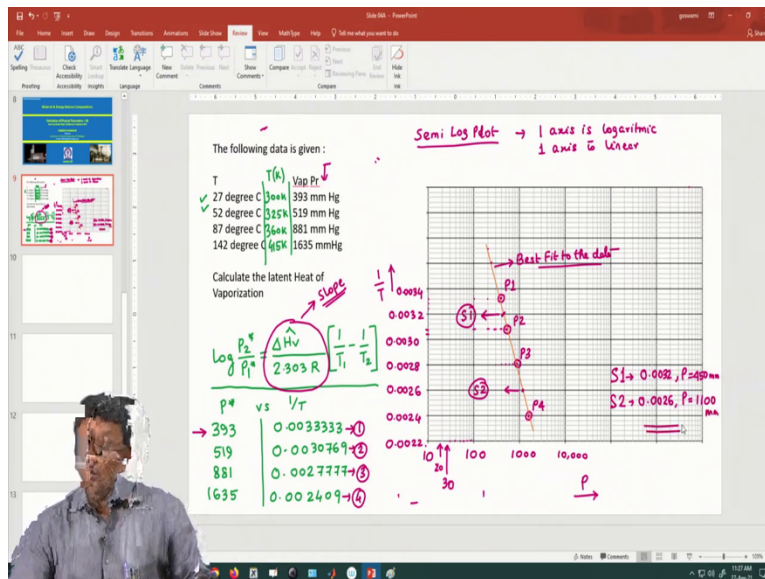 Slide 9AA - PowerPoint
goswami
File Home Insert Draw Design Transitions Animations Slide Show Review View MathType Help Tell me what you want to do
Share
ABC
Spelling Thesaurus Check Accessibility Smart Lookup Translate Language New Comment Delete Previous Next Show Comments Compare Accept Reject Previous Next Reviewing Pane End Review Hide Ink
Proofing Accessibility Insights Language Comments Compare Ink
8
9
10
11
12
13
Semi Log Plot → 1 axis is logaritmic
1 axis is linear
The following data is given :
T T(K) Vap Pr
27 degree C 300K 393 mm Hg
52 degree C 325K 519 mm Hg
87 degree C 360K 881 mm Hg
142 degree C 415K 1635 mmHg
Calculate the latent Heat of
Vaporization
Slope
Log P2*/P1* = ΔĤv/2.303 R [1/T1 - 1/T2]
P* vs 1/T
→ 393 0.0033333→①
519 0.0030769→②
881 0.0027777→③
1635 0.002409→④
1/T
0.0034
0.0032
0.0030
0.0028
0.0026
0.0024
0.0022
Best Fit to the data
P1
S1
P2
P3
S2
P4
S1→ 0.0032, P=450 mm
S2→ 0.0026, P=1100 mm
10 100 1000 10,000
20
30
P
Notes Comments
11:27 AM